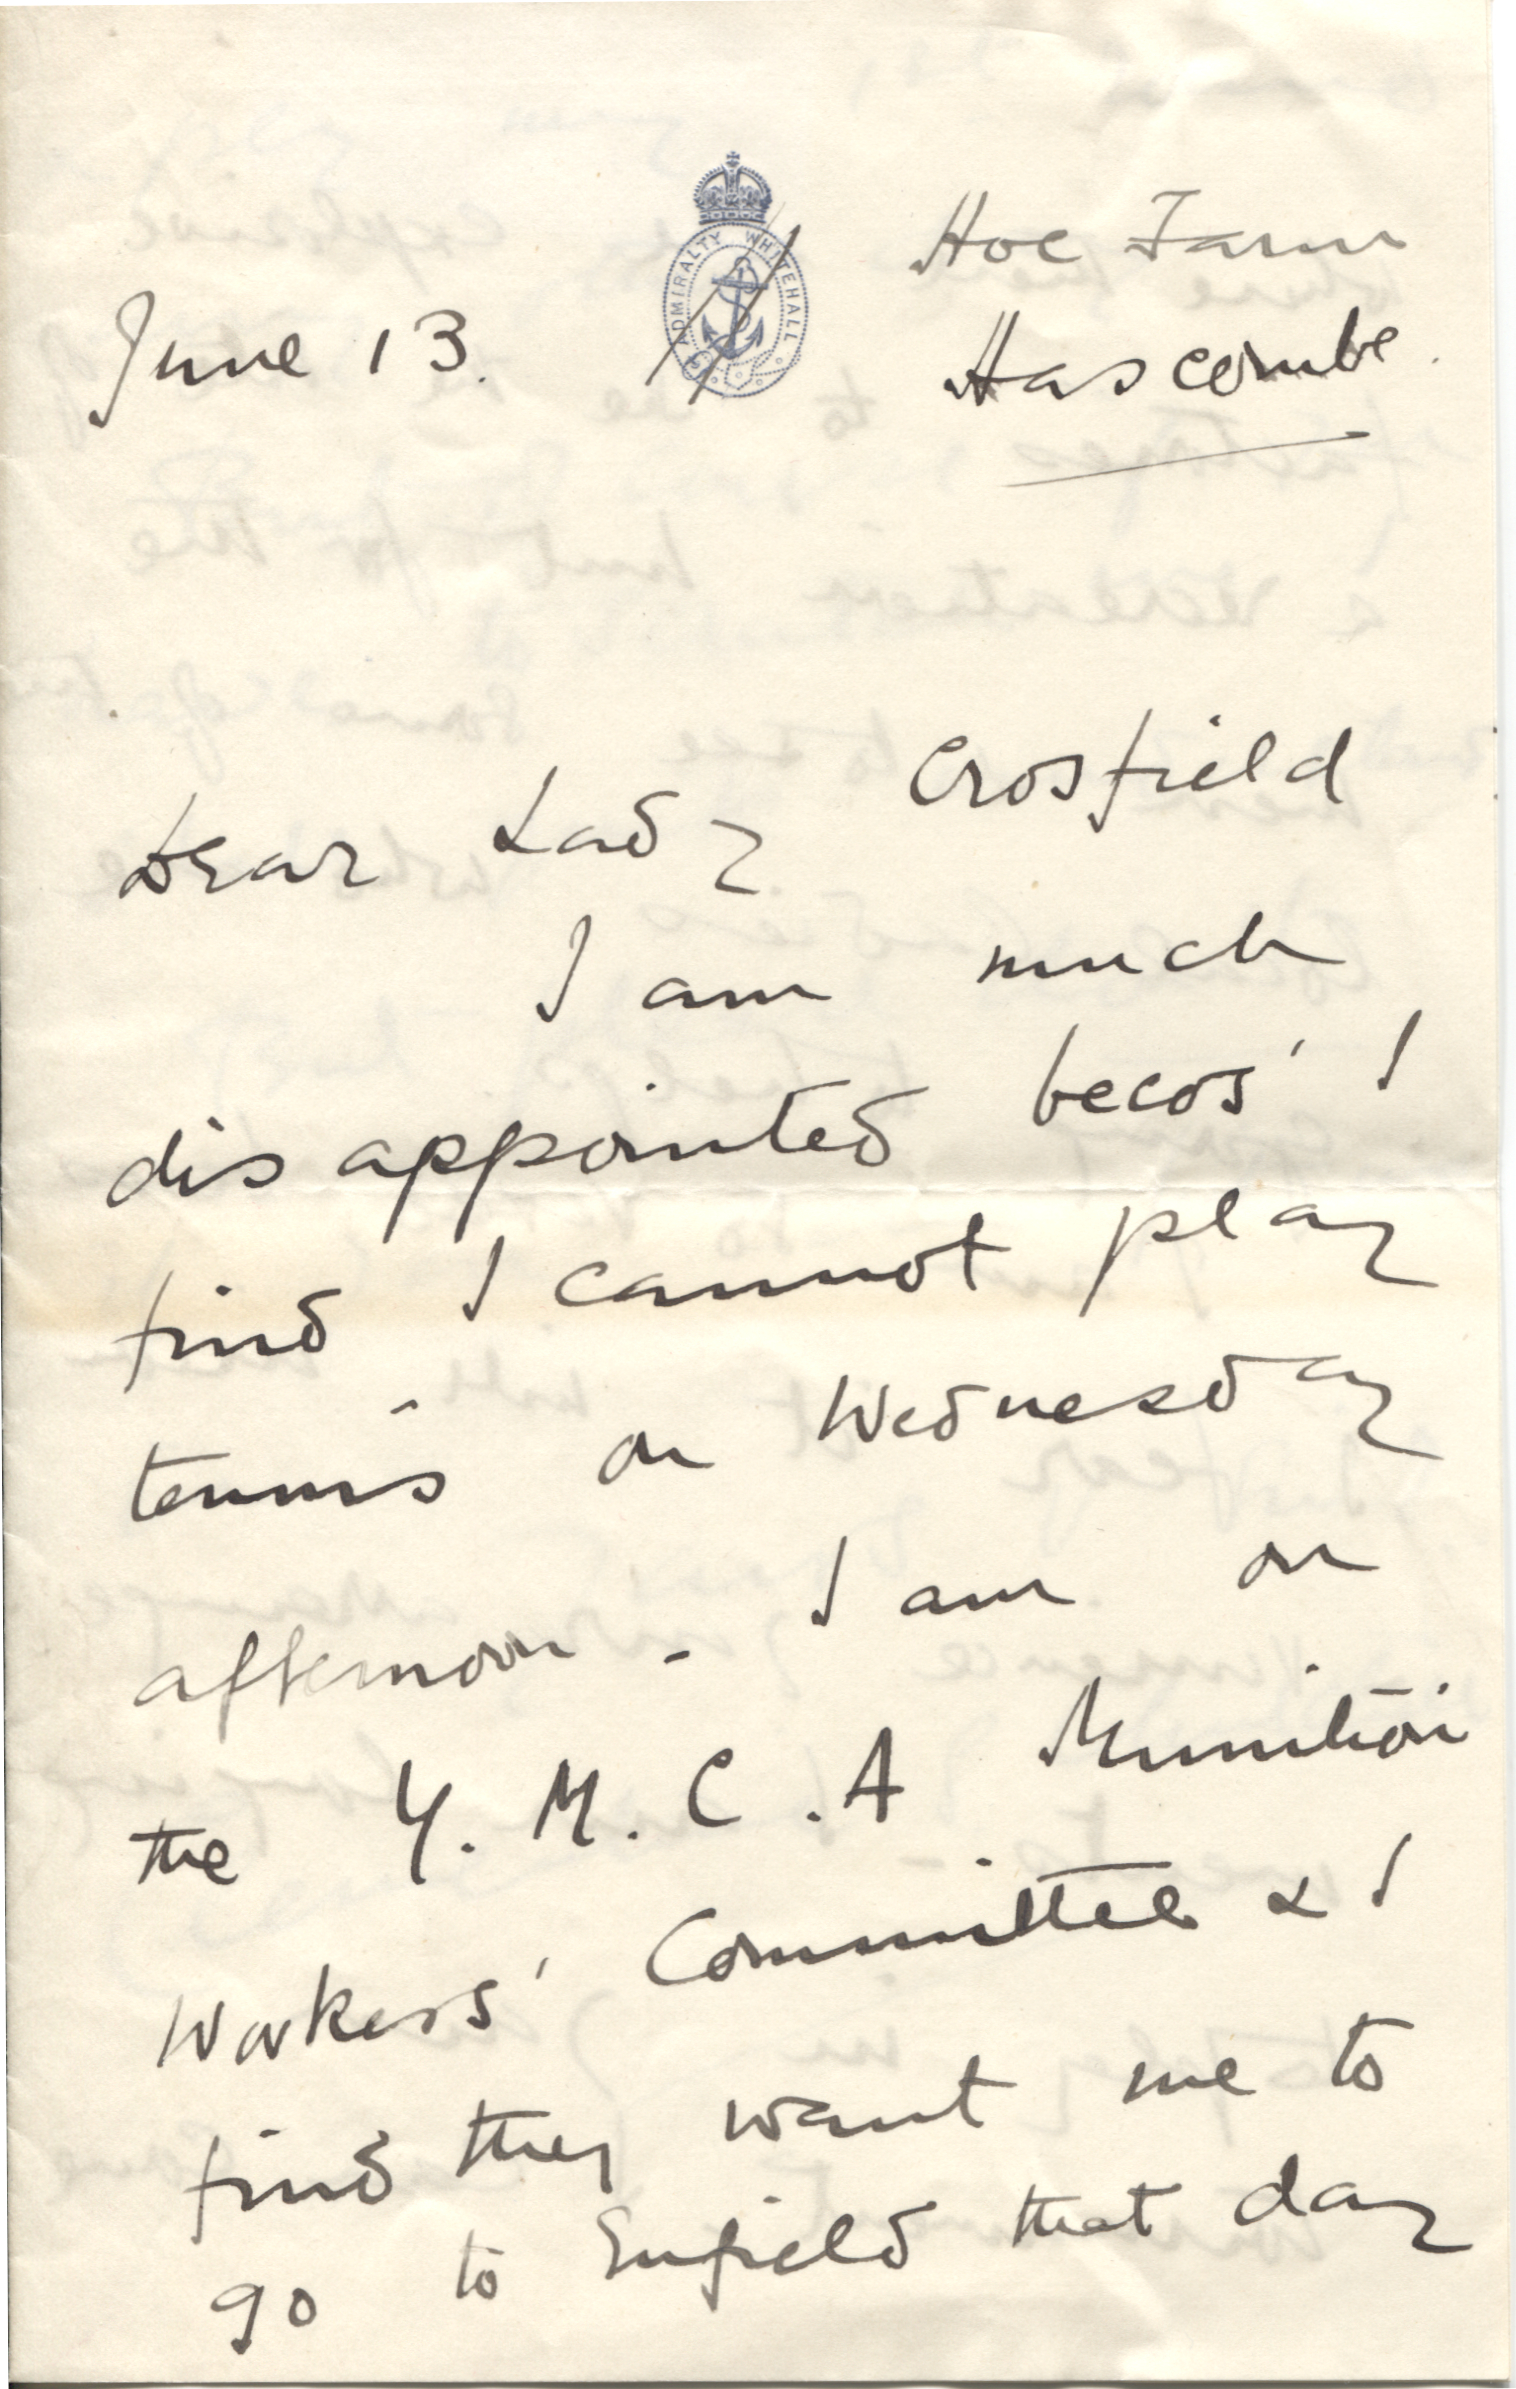 ADMIRALTY WHITEHALL
Hoe Farm
Hascombe.
June 13.
Dear Lady Crosfield
I am much
disappointed becos' I
find I cannot play
tennis on Wednesday
afternoon - I am on
the Y.M.C.A Munition
Workers' Committee & I
find they want me to
go to Enfield that day